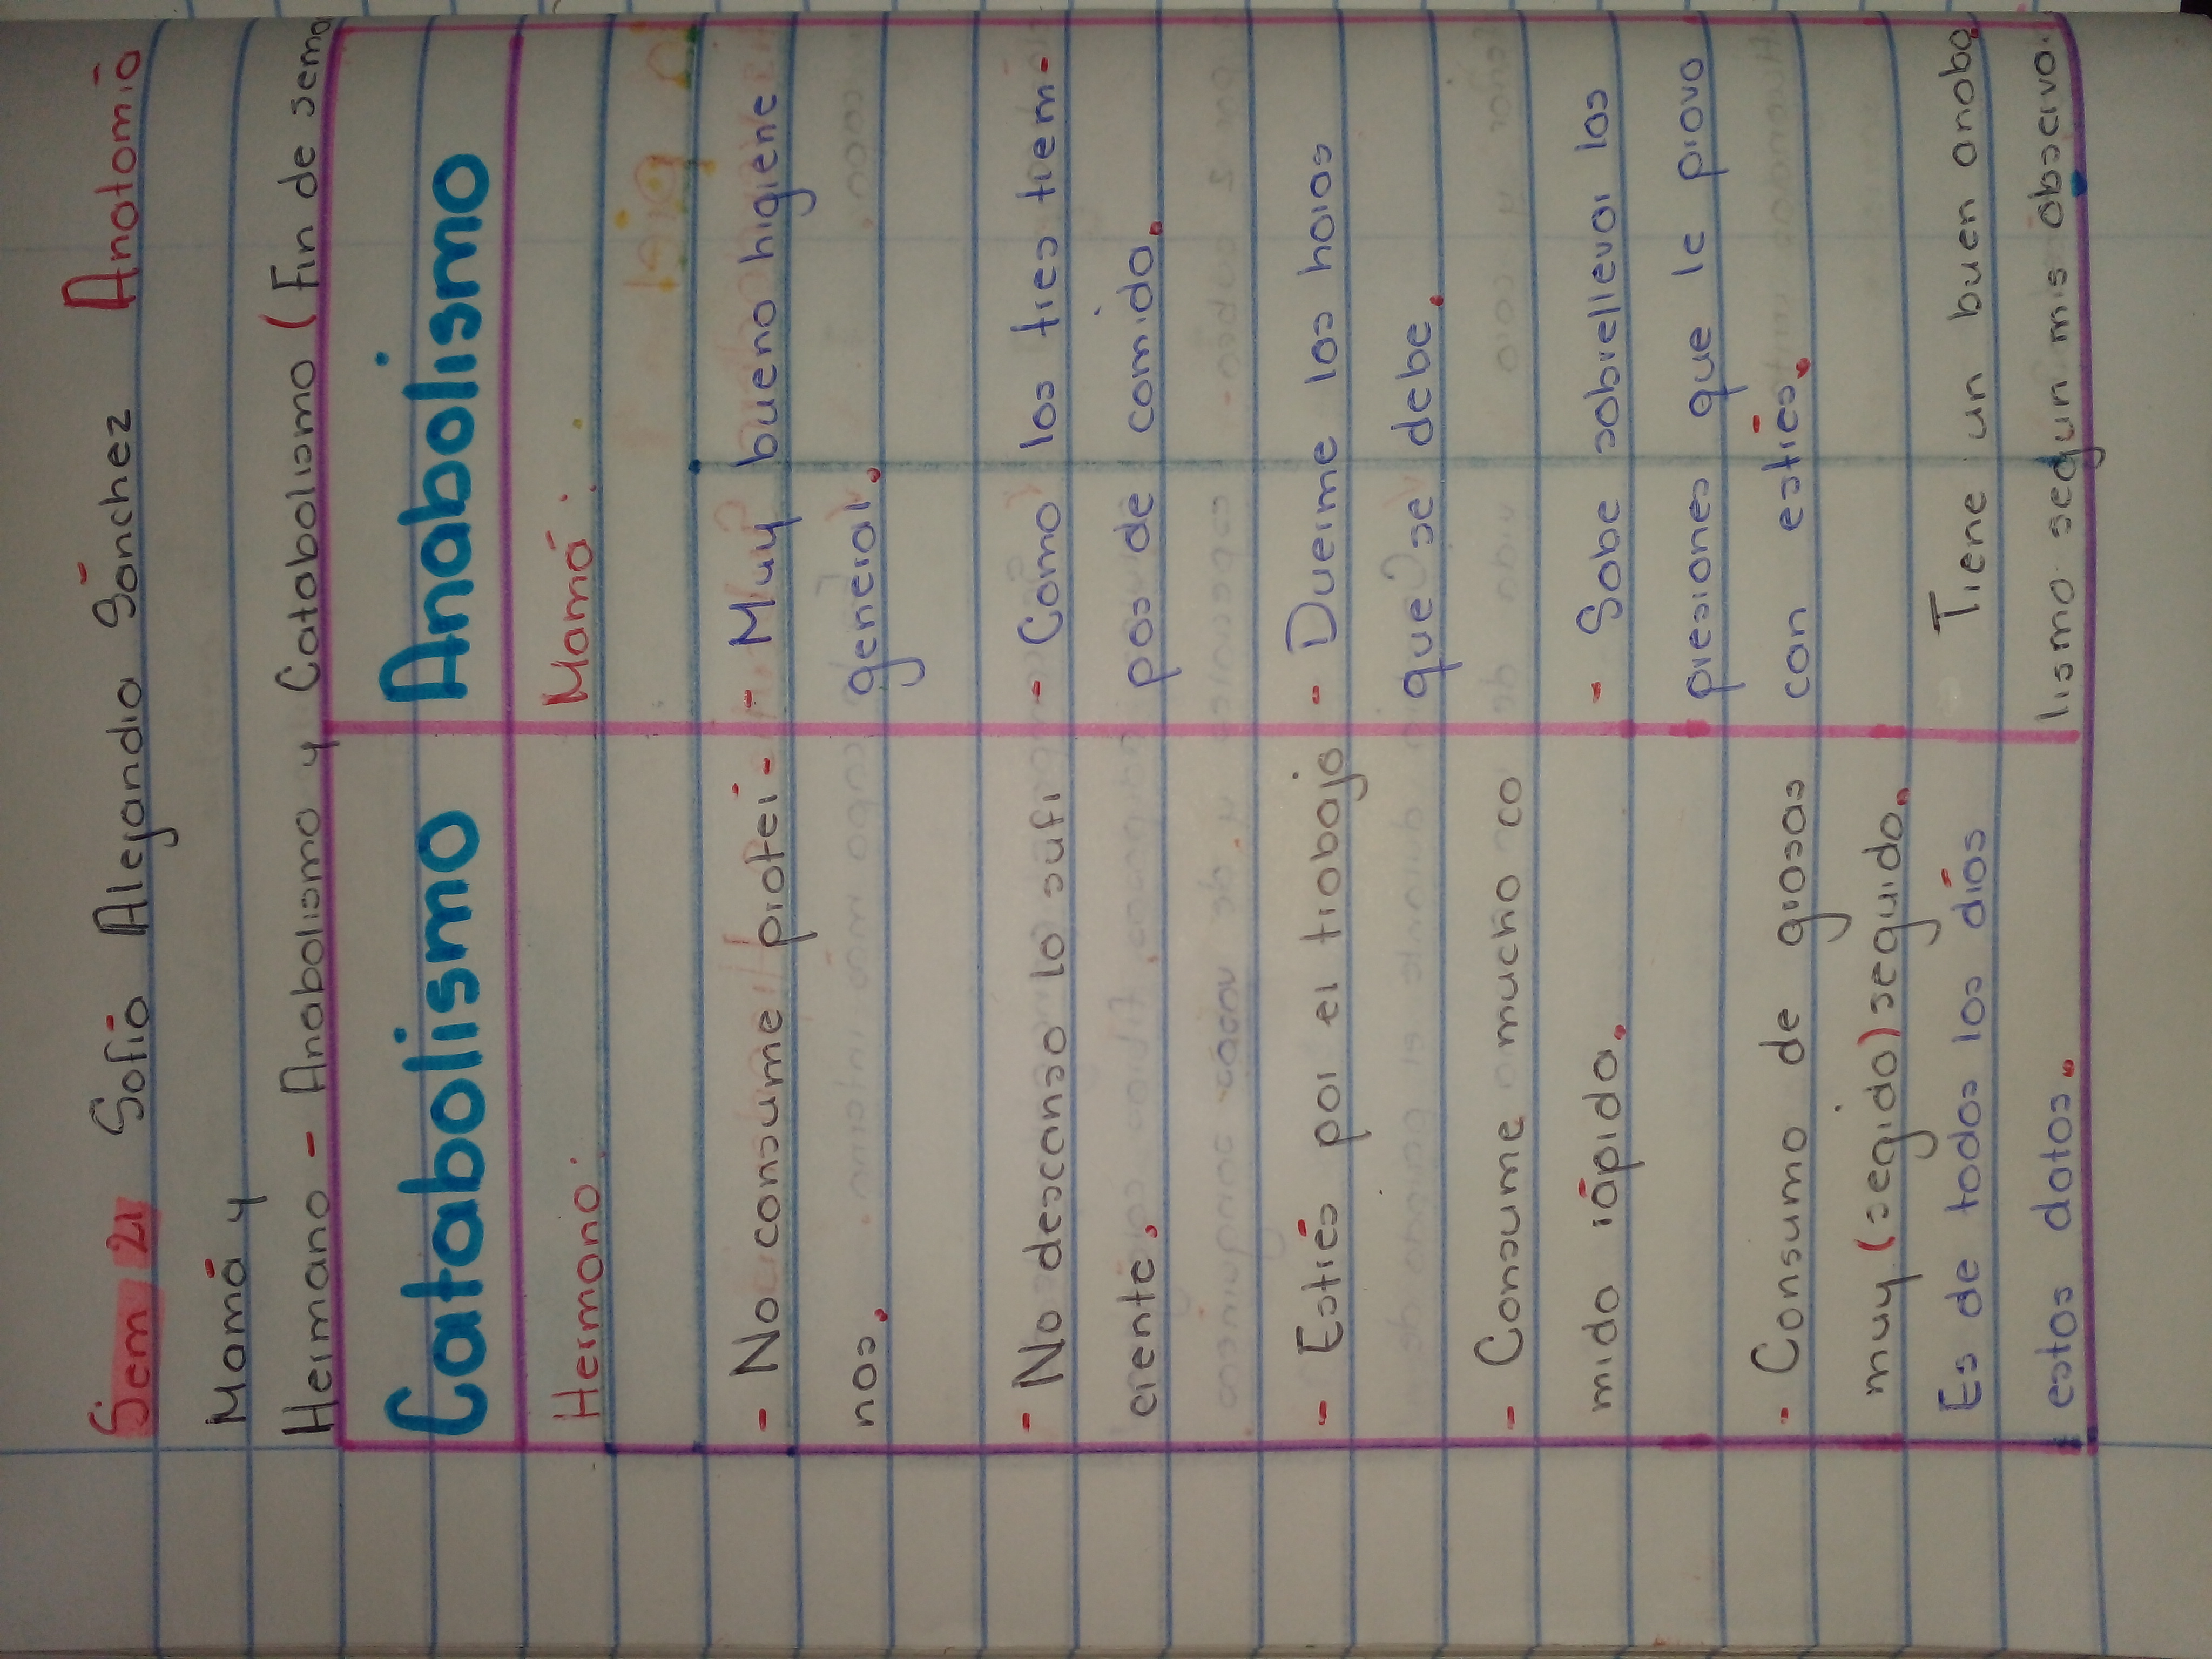 Sem 21 Sofía Alejandra Sánchez Anatomía
Mamá y
Hermano - Anabolismo y Catabolismo (Fin de sema
Catabolismo
Hermano:
- No consume protei-
nas.
- No descansa lo sufi
ciente.
- Estrés por el trabajo
- Consume mucha co
mida rápida.
- Consumo de grasas
muy (segido) seguido.
Es de todos los días
estos datos.
Anabolismo
Mamá:
- Muy buena higiene
general.
- Come los tres tiem-
pos de comida.
- Duerme las horas
que se debe.
- Sabe sobrellevar las
presiones que le prova
con estrés.
Tiene un buen anaba
lismo segun mis observa.